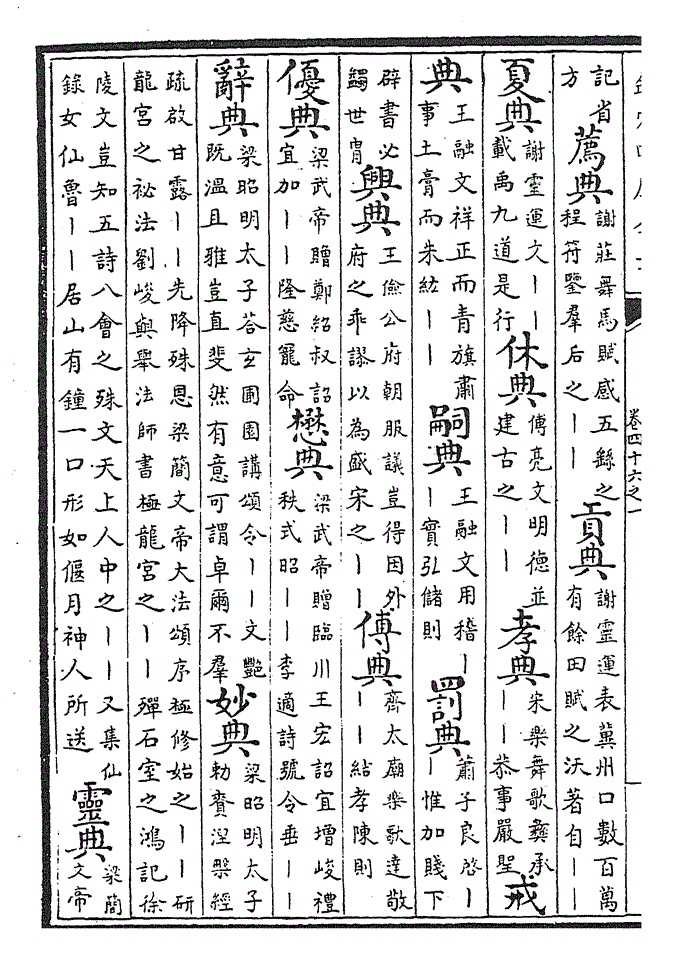 卷四十六之一
記省
方
薦典
謝莊舞馬賦感五繇之
程符鑒羣后之丨丨
貢典
謝靈運表冀州口數百萬
有餘田賦之沃著自丨丨
夏典
謝靈運文丨丨
載禹九道是行
休典
傅亮文明德並
建古之丨丨
孝典
宋樂舞歌彝承
丨丨恭事嚴聖
戒
典
王融文祥正而青旗肅
事土膏而朱紘丨丨
嗣典
王融文用稽丨
丨實弘儲則
罰典
蕭子良啓丨
丨惟加賤下
辟書必
世胄
興典
王儉公府朝服議豈得因外
府之乖謬以為盛宋之丨丨
傅典
齊太廟樂歌達敬
丨丨結孝陳則
優典
梁武帝贈鄭紹叔詔
宜加丨丨隆慈寵命
懋典
梁武帝贈臨川王宏詔宜增峻禮
秩式昭丨丨李適詩號令垂丨丨
辭典
梁昭明太子荅玄圃園講頌令丨丨文艷
既溫且雅豈直斐然有意可謂卓爾不羣
妙典
梁昭明太子
勅賚涅槃經
疏啟甘露丨丨先降殊恩梁簡文帝大法頌序極修始之丨丨研
龍宮之祕法劉峻與舉法師書極龍宮之丨丨殫石室之鴻記徐
陵文豈知五詩八會之殊文天上人中之丨丨又集仙
錄女仙魯丨丨居山有鐘一口形如偃月神人所送
靈典
梁簡
文帝